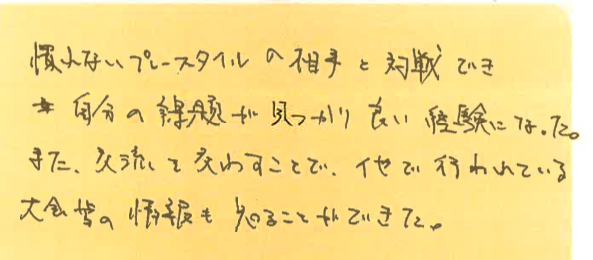 慣れないプレースタイルの相手と対戦でき
自分の課題が見つかり良い経験になった。
また、交流を交わすことで、他で行われている
大会等の情報も知ることができた。